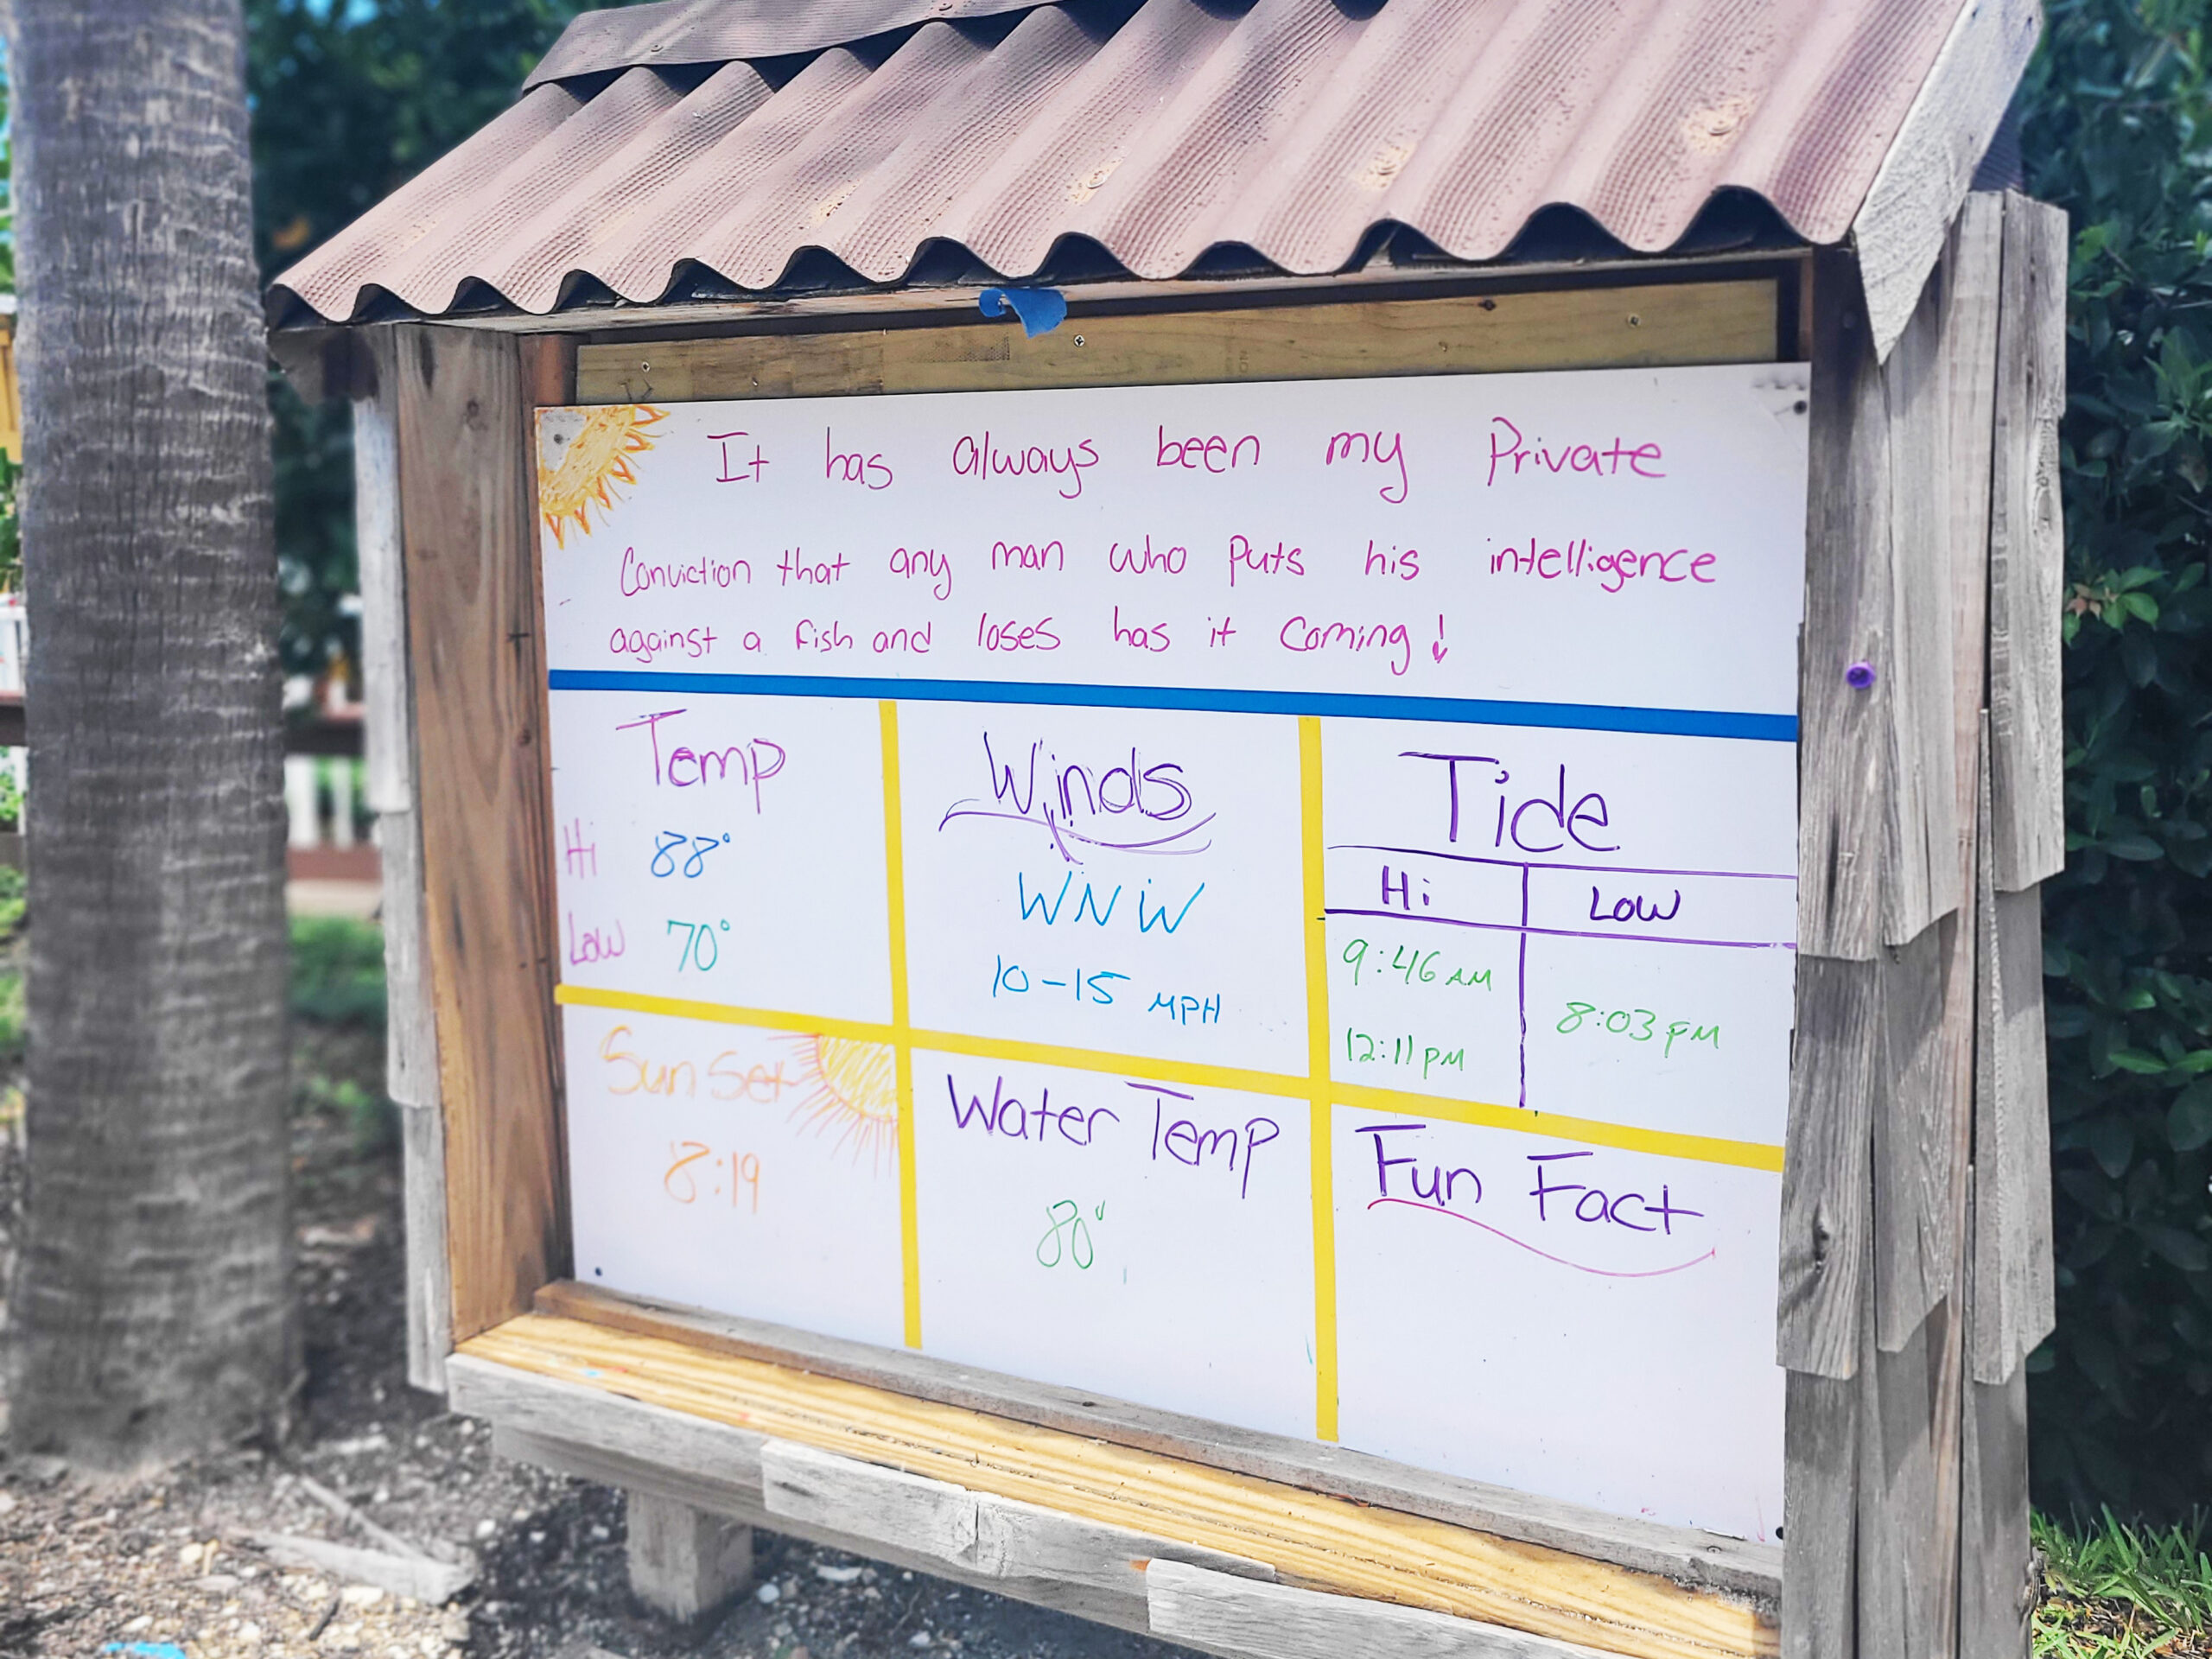 It has always been my Private
Conviction that any man who puts his intelligence
against a fish and loses has it coming!
Temp
Hi 88°
Low 70°
Winds
WNW
10-15 MPH
Tide
Hi Low
9:46 AM
12:11 PM
8:03 PM
Sun Set
8:19
Water Temp
80°
Fun Fact